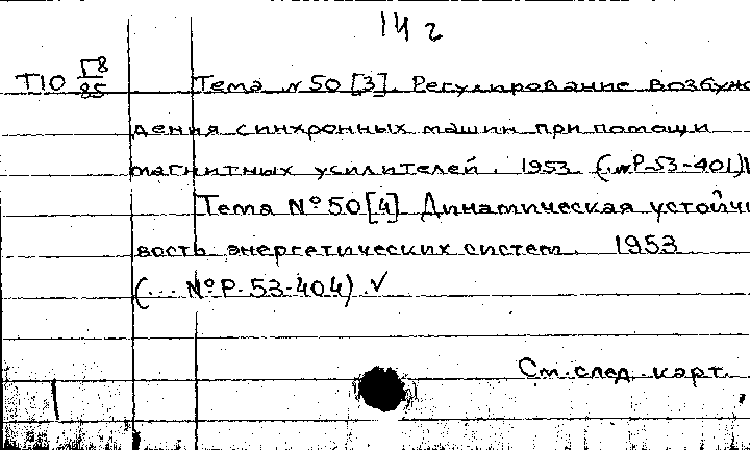 14 г
Т10 Г8/85 Тема № 50 [3]. Регулирование возбуж
дения синхронных машин при помощи
магнитных усилителей. 1953 (...№Р-53-401)
Тема № 50 [4]. Динамическая устойчи
вость энергетических систем. 1953
(... № Р-53-404) ✓
См. след. карт.